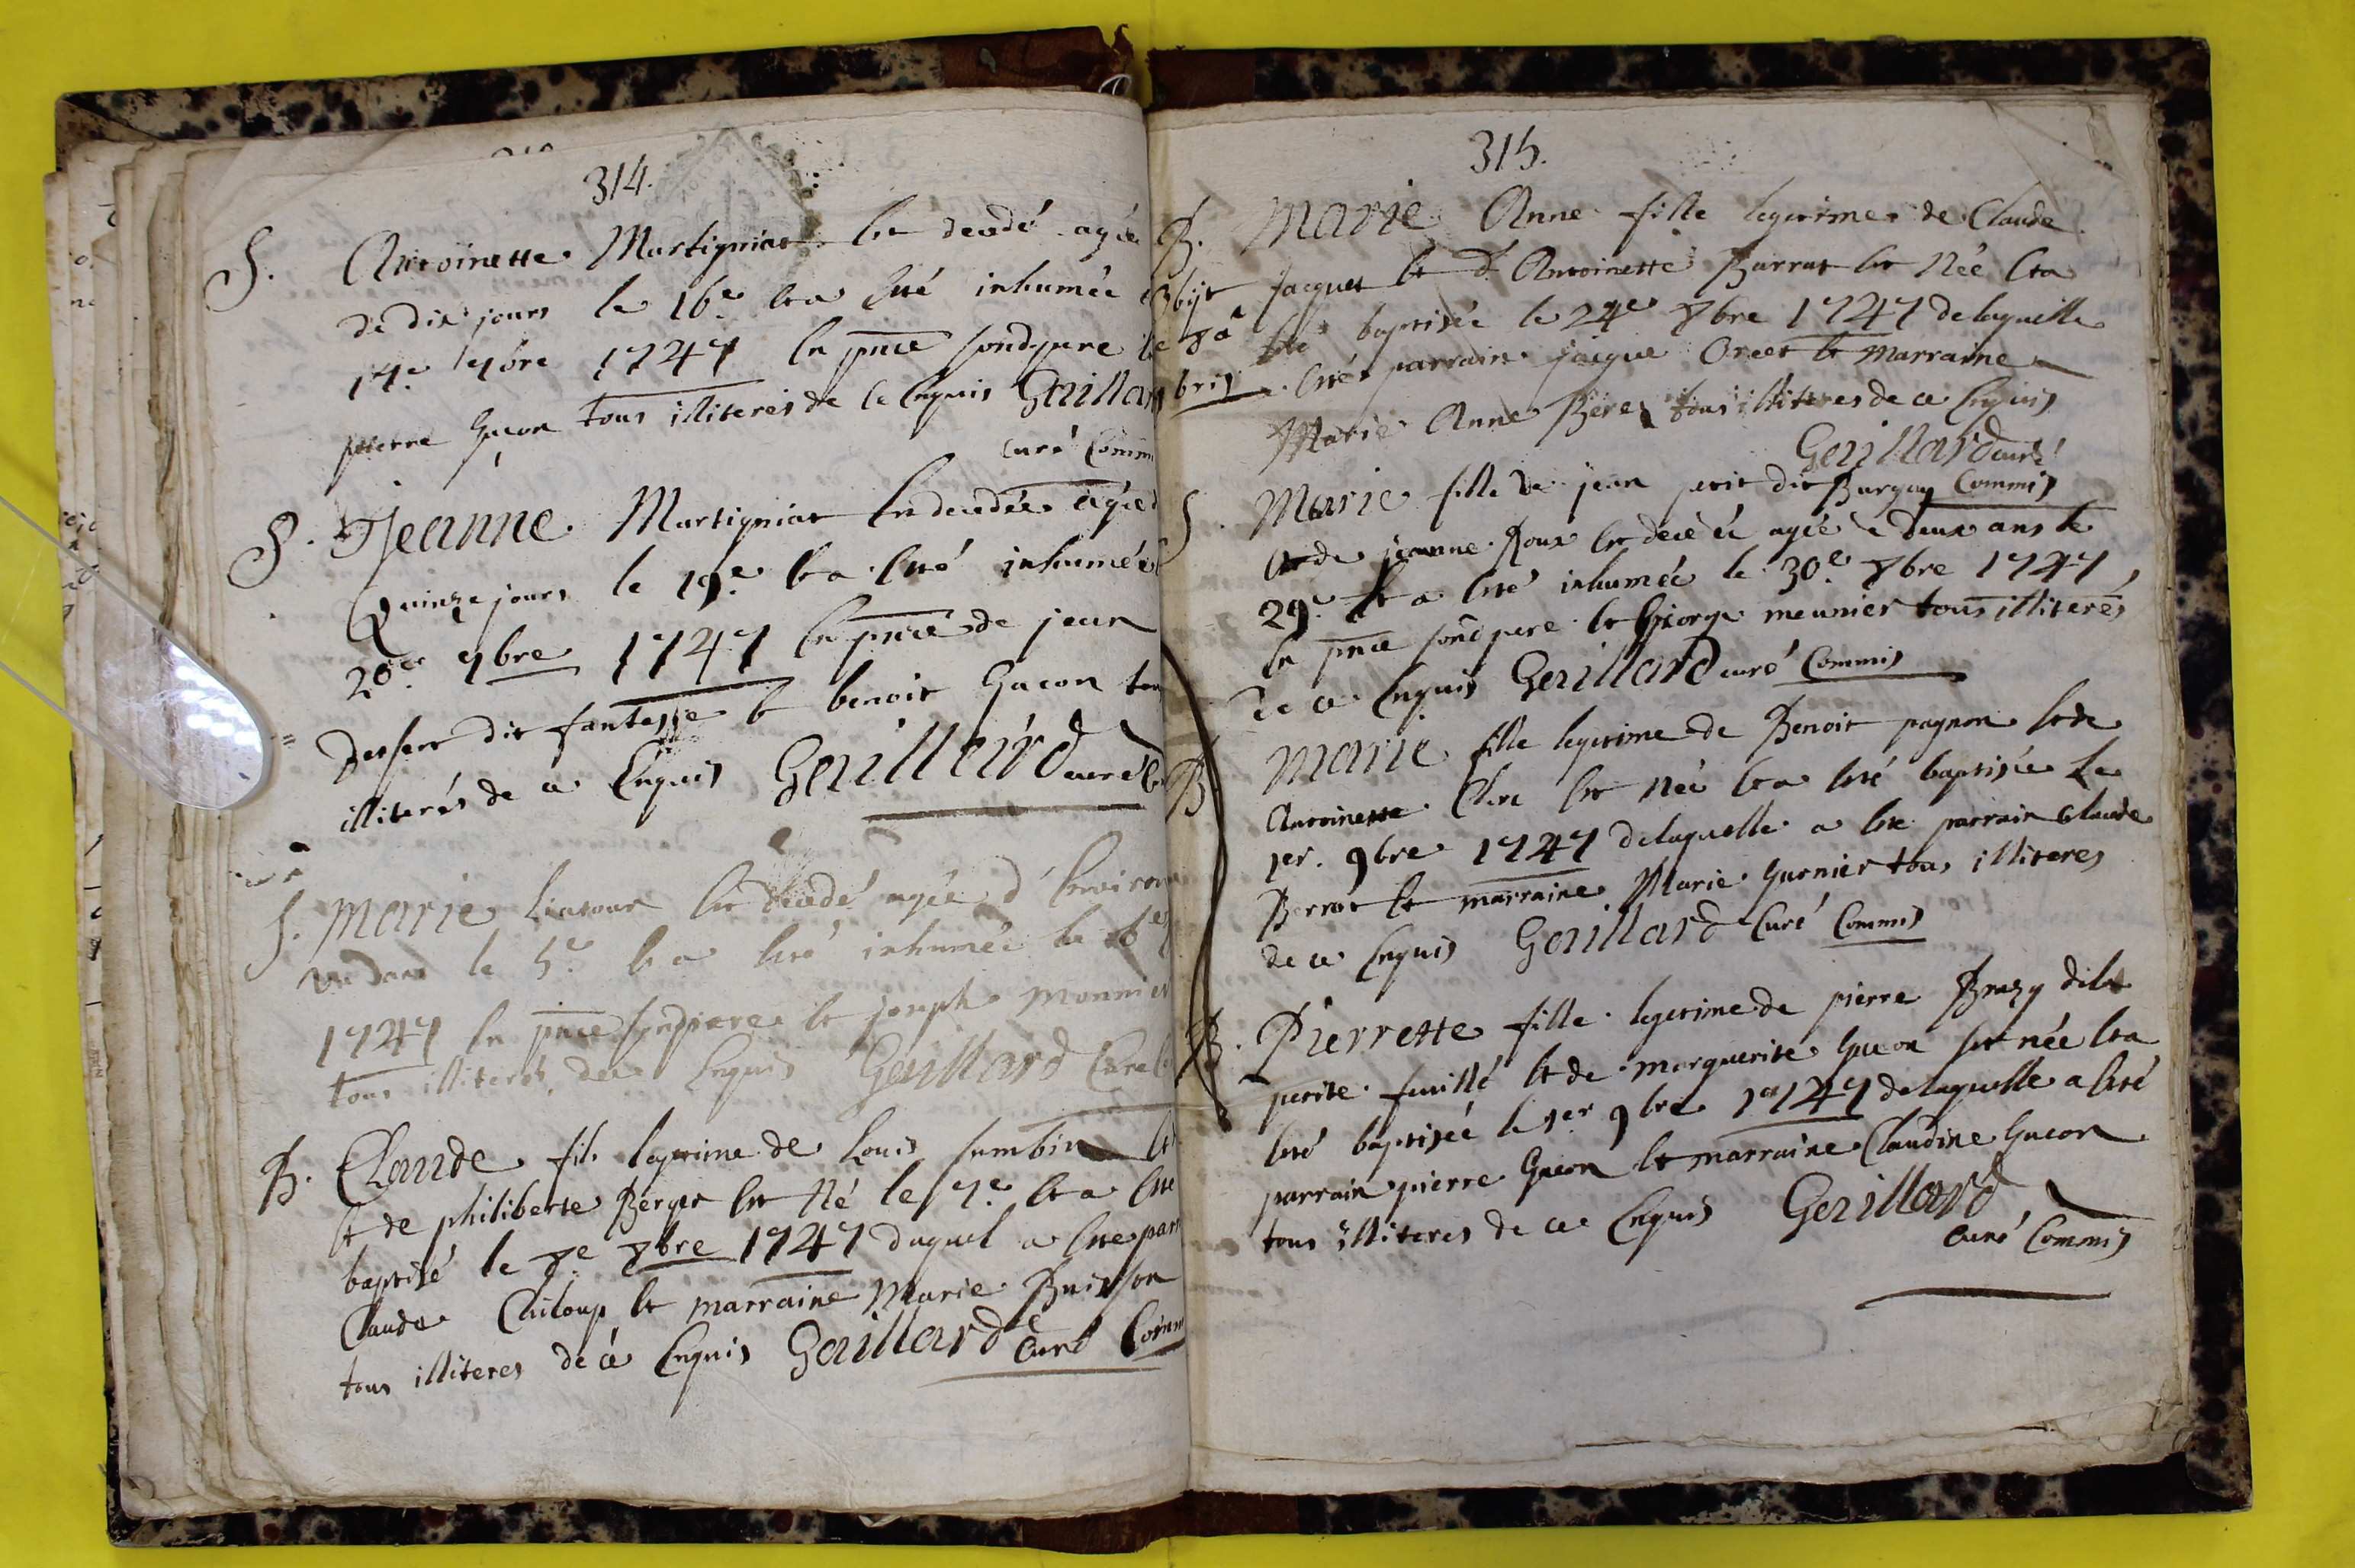 314.
S. Antoinette Martigniat est decedé agée
de dix jours le 16e et a été inhumée
17e 7bre 1747 en pnce sond. pere
pierre Guion tous illiterés de ce Enquis Genillard
curé Comm
S. Jeanne Martigniat en decedée agée
Quinze jours le 19e et a été inhumée
20e 7bre 1747 En pnce de jean
dit fantesse et benoit Gucon
illiterés de ce Enquis Genillard curé
S. Marie est decedé agée d'Environ
un dans le 5e et a été inhumée le 6e
1747 En pnce sond pere et joseph monnier
tous illiterés de ce Enquis Genillard Curé
B. Claude fils legitime de Louis
et de philiberte Berger est Né le 7e et a été
baptisé le 8e 8bre 1747 duquel a été par
Claude Chiloup et marraine Marie Buisson
tous illiteres de ce Enquis Genillard curé Comm
315.
B. Marie Anne fille legitime de Claude
Jacquet et d'Antoinette Barrat est Née et a
été baptisée le 24e 8bre 1747 de laquelle
été parrain jacque Orcet et marraine
Marie Anne tous illiteres de ce Enquis
Genillard curé
Commis
S. Marie fille de jean petit dit
et de jeanne Roux est decedée agée de deux ans le
29e et a été inhumée le 30e 8bre 1747
En pnce sond pere et George meunier tous illiterés
de ce Enquis Genillard curé Commis
B. Marie fille legitime de Benoit pagnon et de
Antoinette Clerc est Née et a été baptisée Le
1er. 9bre 1747 de laquelle a été parrain Claude
Berrot et marraine Marie Gurnier tous illiteres
de ce Enquis Genillard Curé Commis
B. Pierrette fille legitime de pierre Brazy dit
petite feuille et de marguerite Gucon est née et a
été baptisée le 1er 9bre 1747 de laquelle a été
parrain pierre Gucon et marraine Claudine Gucon
tous illiteres de ce Enquis Genillard
curé Commis